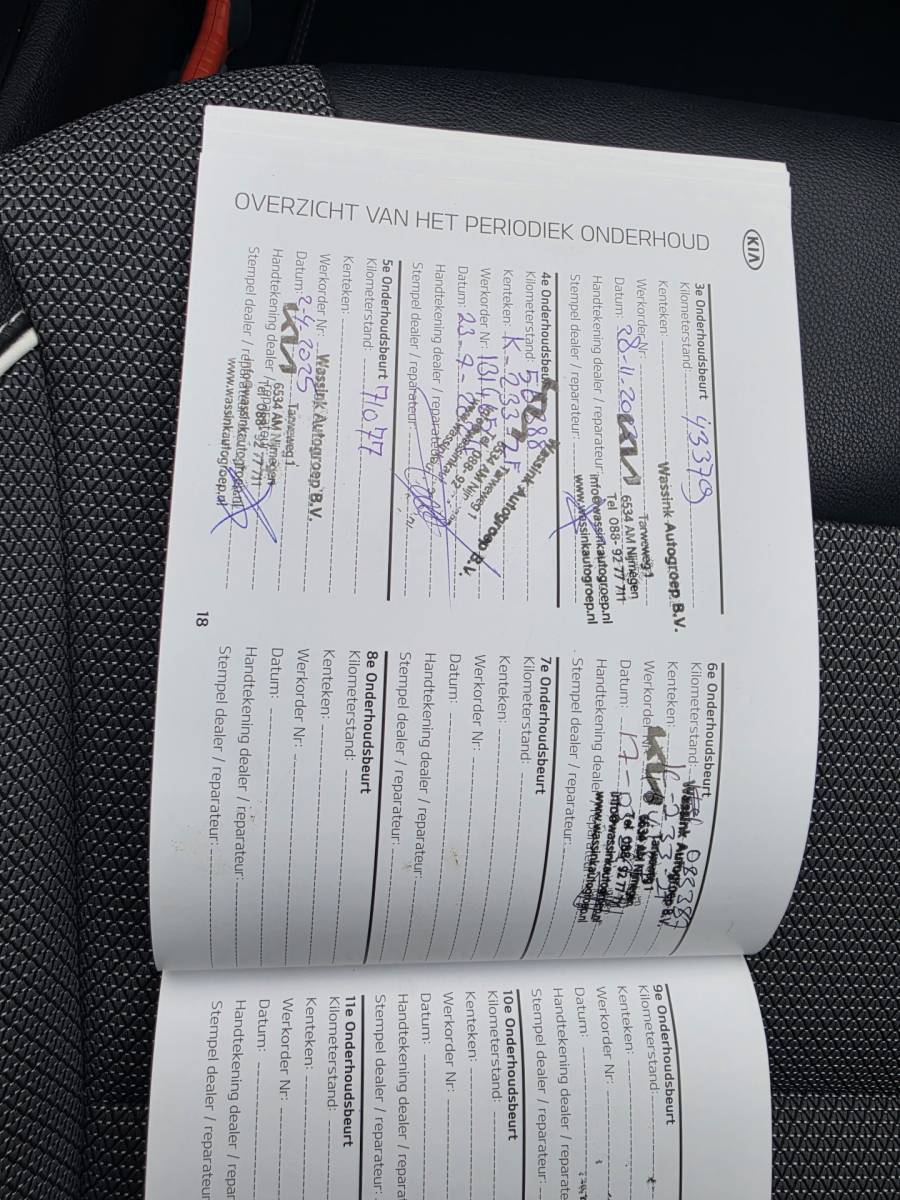 KIA
OVERZICHT VAN HET PERIODIEK ONDERHOUD
3e Onderhoudsbeurt
Kilometerstand: 43379
Kenteken: Wassink Autogroep B.V.
Werkorder Nr: Tarweweg 1
6534 AM Nijmegen
Datum: 28-11-20 Tel 088-92 77 711
Handtekening dealer / reparateur: info@wassinkautogroep.nl
Stempel dealer / reparateur: www.wassinkautogroep.nl
4e Onderhoudsbeurt
Kilometerstand:
Kenteken: K-233-
Werkorder Nr:
Datum: 23-
Handtekening dealer / reparateur:
Stempel dealer / reparateur:
Wassink Autogroep B.V.
5e Onderhoudsbeurt
Kilometerstand: 71077
Kenteken:
Werkorder Nr: Wassink Autogroep B.V.
Datum: 2-4-2025 Tarweweg 1
KIA 6534 AM Nijmegen
Handtekening dealer / reparateur: Tel 088-92 77 711
info@wassinkautogroep.nl
Stempel dealer / reparateur: www.wassinkautogroep.nl
18
6e Onderhoudsbeurt
Kilometerstand: 083387
Kenteken: Wassink Autogroep B.V.
Werkorder Nr: Tarweweg 1
6534 AM Nijmegen
Datum: 17- Tel 088-92 77 711
Handtekening dealer / reparateur: info@wassinkautogroep.nl
Stempel dealer / reparateur: www.wassinkautogroep.nl
7e Onderhoudsbeurt
Kilometerstand:
Kenteken:
Werkorder Nr:
Datum:
Handtekening dealer / reparateur:
Stempel dealer / reparateur:
8e Onderhoudsbeurt
Kilometerstand:
Kenteken:
Werkorder Nr:
Datum:
Handtekening dealer / reparateur:
Stempel dealer / reparateur:
9e Onderhoudsbeurt
Kilometerstand:
Kenteken:
Werkorder Nr:
Datum:
Handtekening dealer / reparate
Stempel dealer / reparateur:
10e Onderhoudsbeurt
Kilometerstand:
Kenteken:
Werkorder Nr:
Datum:
Handtekening dealer / reparate
Stempel dealer / reparateur
11e Onderhoudsbeurt
Kilometerstand:
Kenteken:
Werkorder Nr:
Datum:
Handtekening dealer / repara
Stempel dealer / reparateur